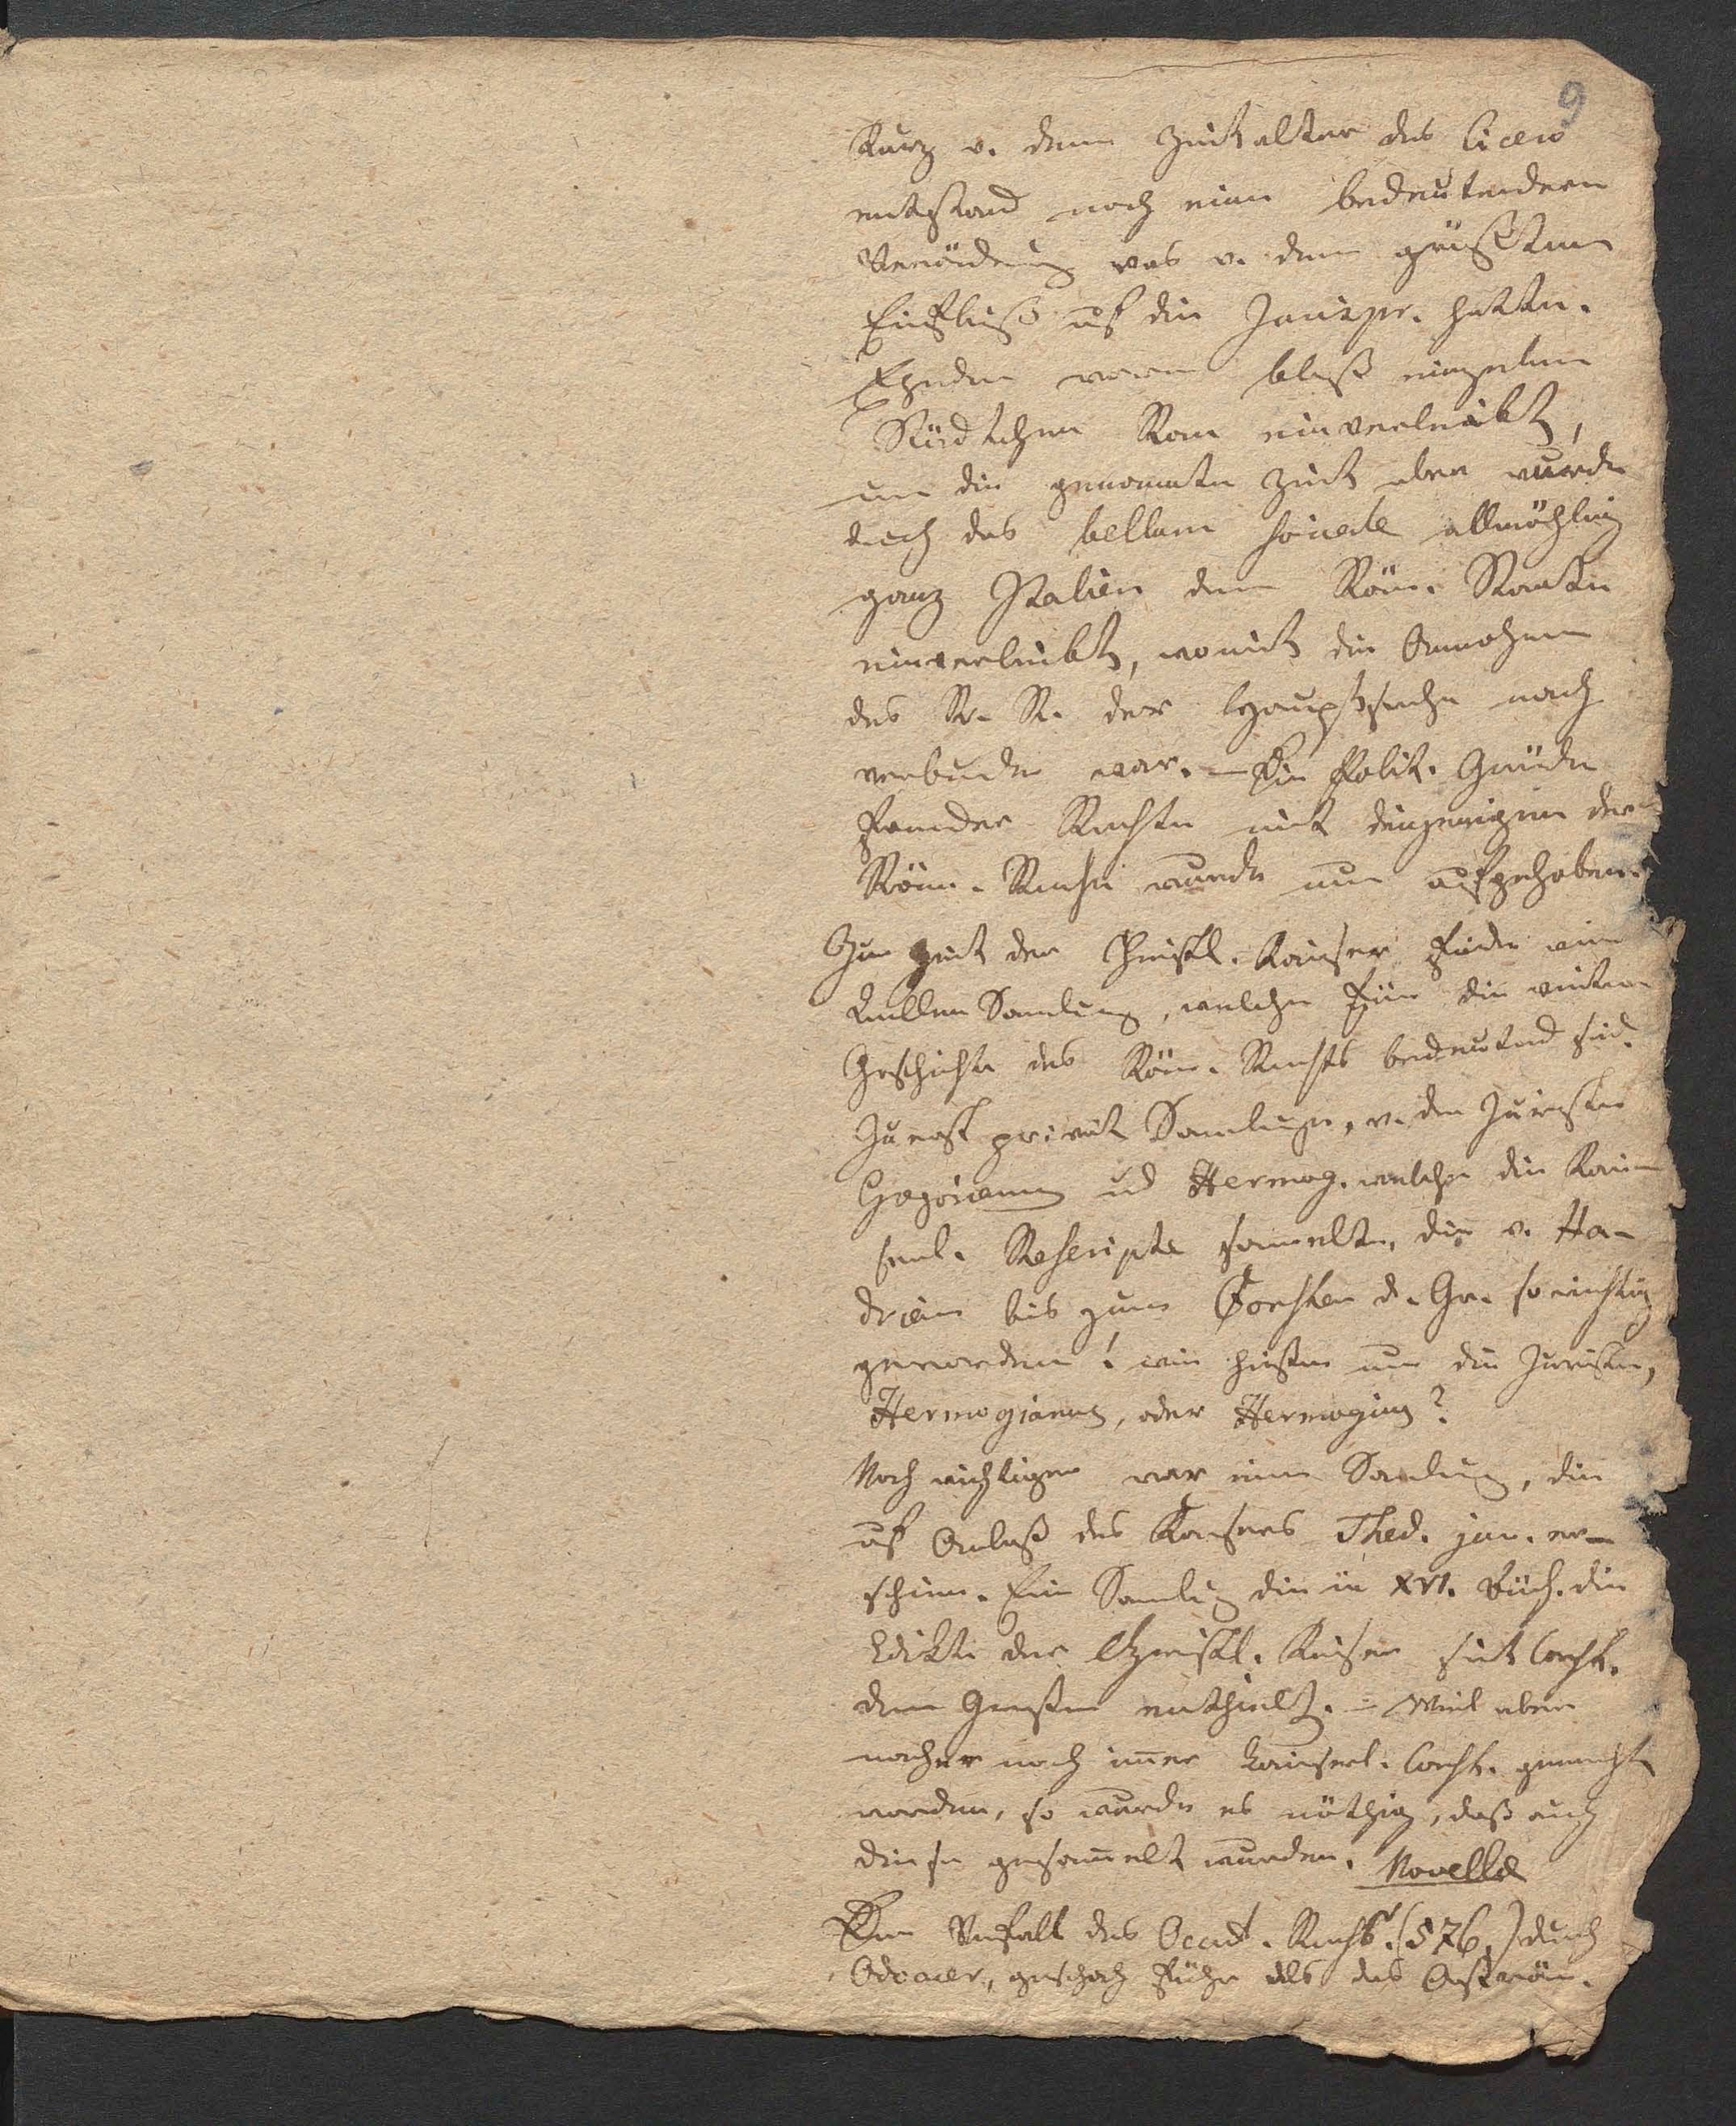 9
Kurz v. dem Zeitalter des Cicero
entstand noch eine bedeutendere
Veränderung was v. dem größten
Einfluß auf die Jurispr. hatte.
Ehedem waren bloß einzelne
Städtchen Rom einverleibt,
um die genannte Zeit aber wurde
durch das bellum sociale allmählig
ganz Italien dem Röm. Staate
einverleibt, womit die Annahme
des R. R. der Hauptsache nach
verbunden war. – Die Polit.
fremder Rechte mit denjenigen der
Röm. Rechte wurde nun aufgehoben.
Zur Zeit der Christl. Kaiser finden wir
Quellen Samlung, welche für die weitere
Geschichte des Röm. Rechts bedeutend sind.
Zuerst privat Samlungen, v. den Juristen
Gregorianus und Hermog. welche die Kai
serl. Rescripte sammelten, die v. Ha-
drian bis zum Consten d. Gr. so wichtig
geworden! wie hießen nun die Juristen,
Hermogianus, oder Hermoginus?
Noch wichtiger war eine Samlung, die
auf Anlaß des Kaisers Thed. jun. er-
schien. Eine Samlung die in XVI. Büch. die
Edikte der Christl. Kaiser seit Const.
dem Großen enthielt. – Weil aber
nachher noch im̄er kaiserl. Const. gemacht
worden, so wurde es nöthig, daß auch
diese gesam̄elt wurden. Novellæ
Der Verfall des Occid. Reichs (576.) durch
Odoacer, geschah früher als das Oström.